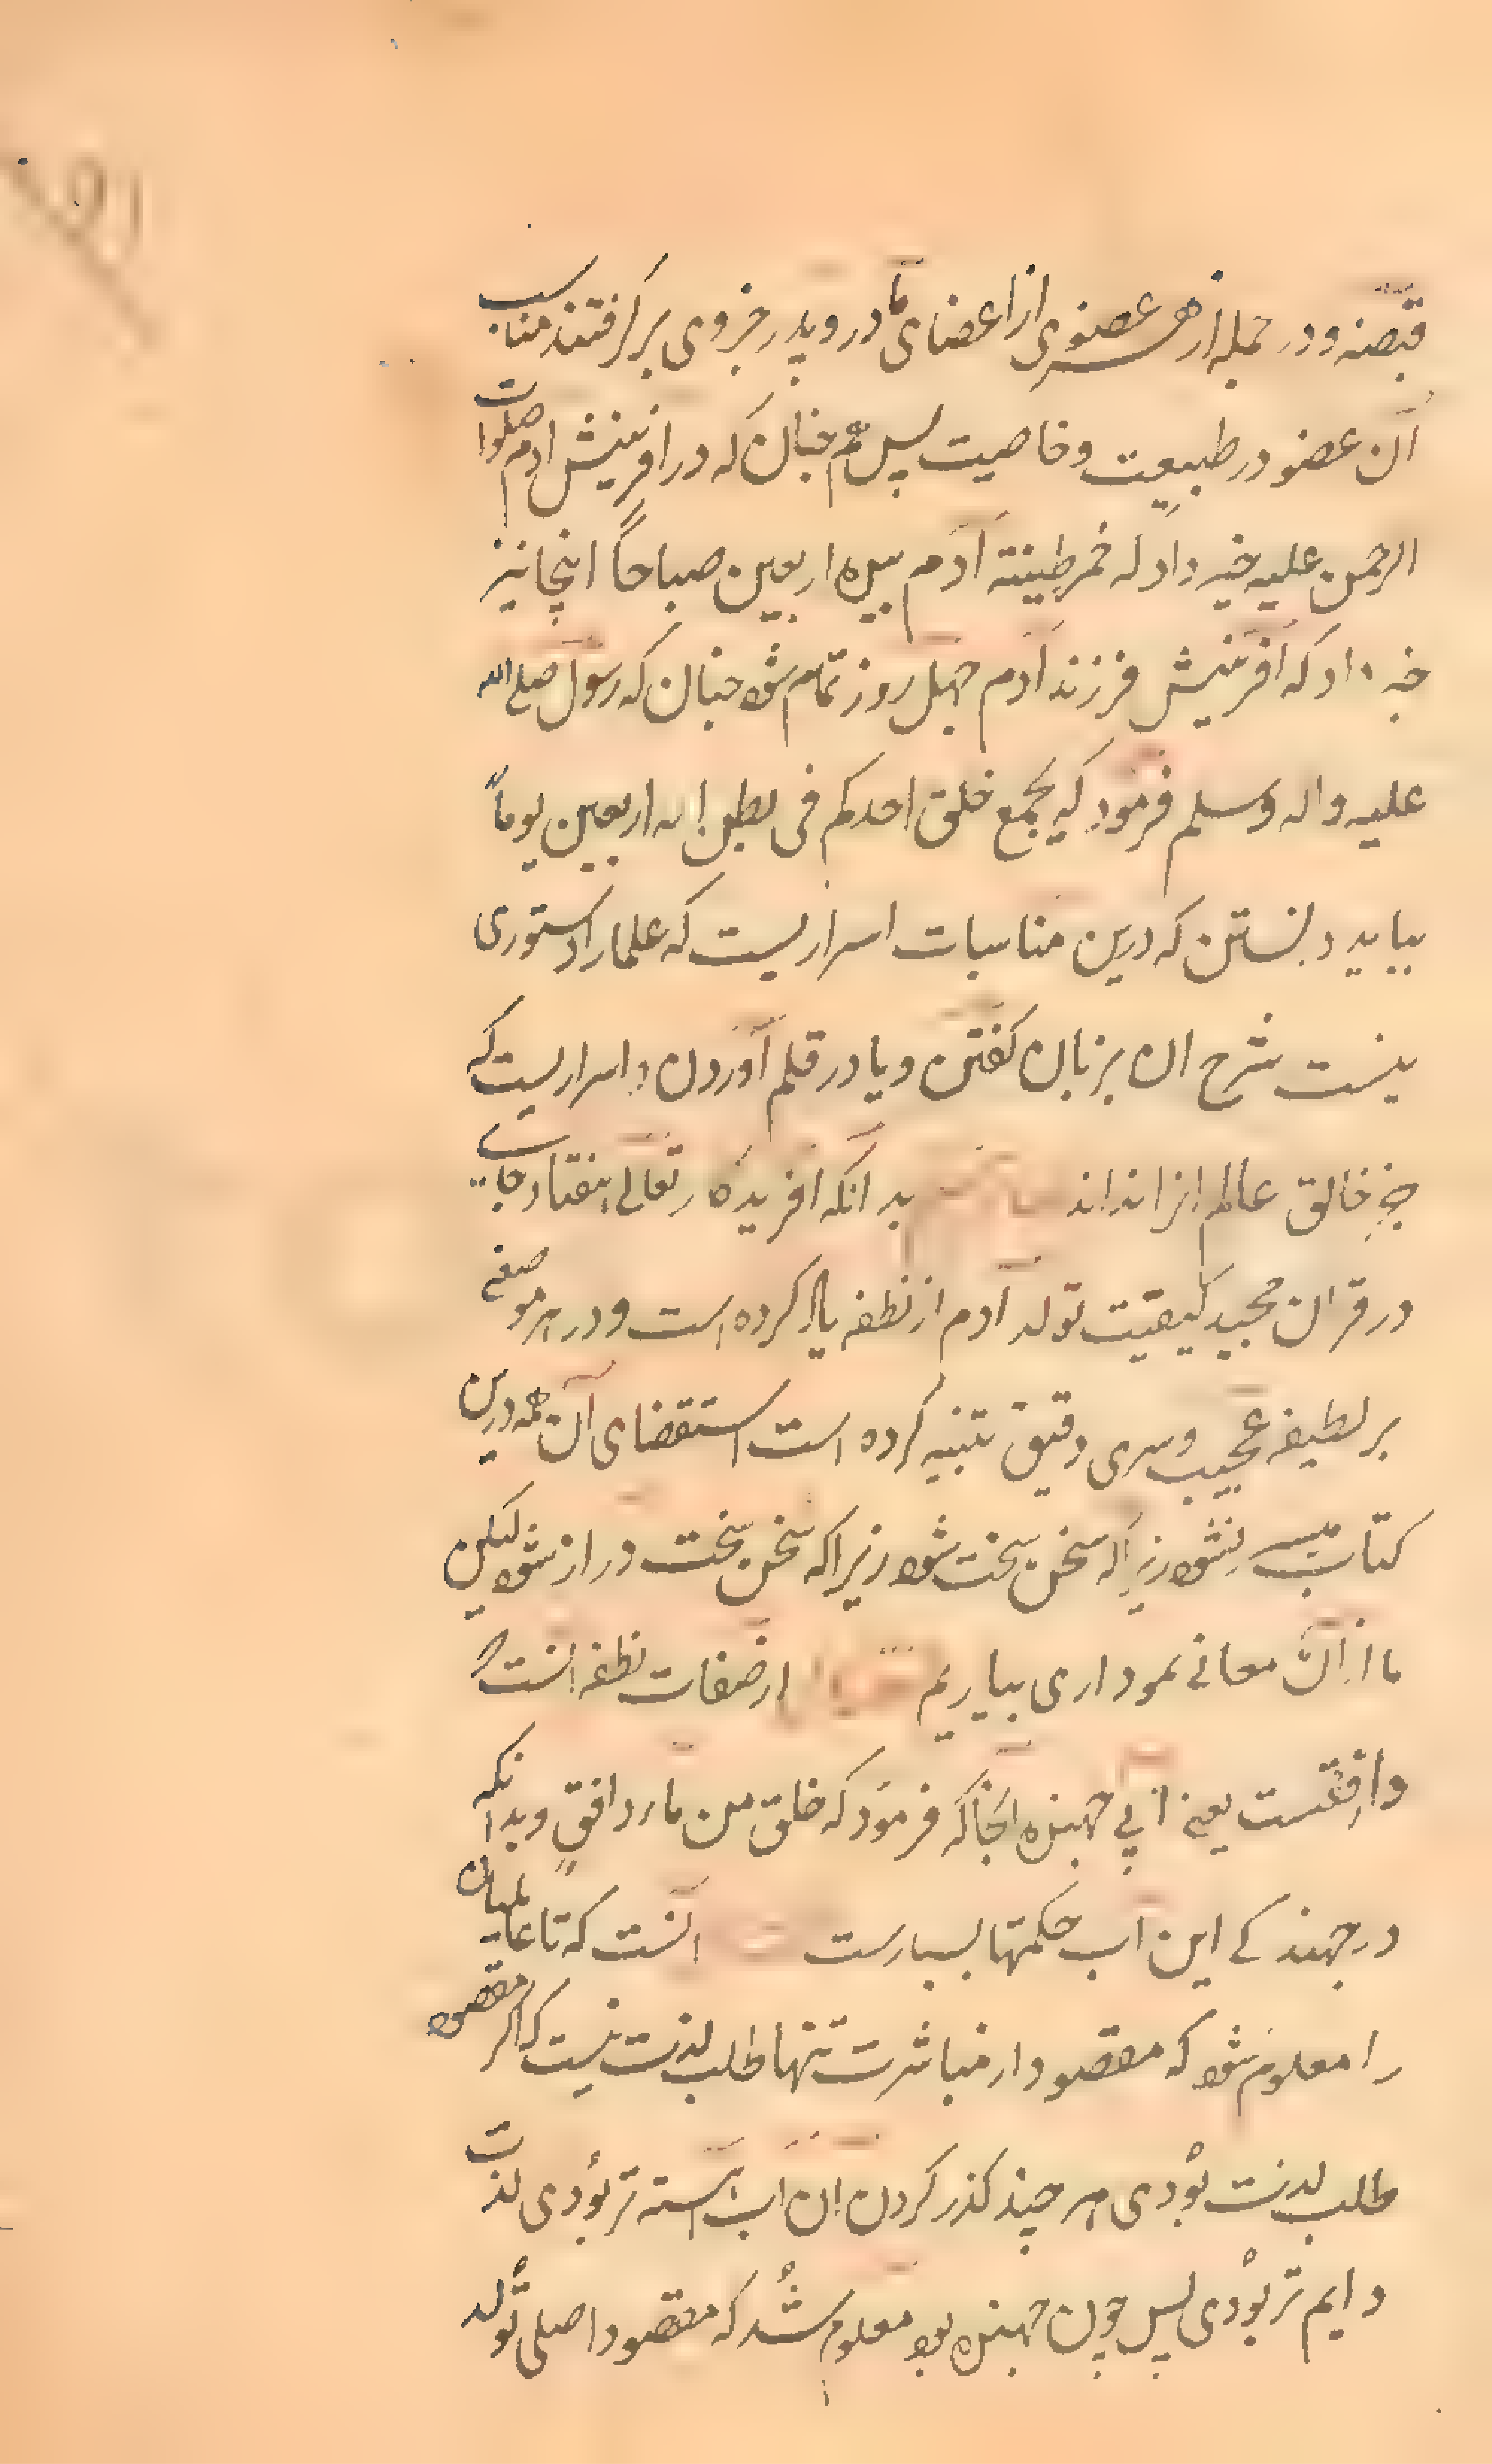 قبضه و در جمله از هر عضوی از اعضای مادر و پدر جزوی برگرفتند مناسب
آن عضو در طبیعت و خاصیت پس هم جنان که در افرینش ادم صلوات
الرحمن علیه خبر داد که خمر طینة آدم بیده اربعین صباحاً اینجا نیز
خبر داد که آفرینش فرزند آدم جهل روز تمام شود جنان که رسول صلی الله
علیه واله وسلم فرمود که یجمع خلق احدکم فی بطن امه اربعین یوماً
بباید دانستن که درین مناسبات اسراریست که علما را دستوری
نیست شرح ان بزبان کفتن و یا در قلم آوردن و اسراریست که
جز خالق عالم انرا نداند بدانکه افریدکار تعالی بهفتاد جایب
در قران مجید کیفیت تولد آدم از نطفه یاد کرده است و در هر موضعی
بر لطیفه عجیب و سری دقیق تنبیه کرده است استقصای آن همه درین
کتاب میسر نشود زیرا که سخن سخت شود زیرا که سخن سخت دراز شود لیکن
ما از آن معانی نموداری بیاریم از صفات نطفه انست که
دافقست یعنی آبی جهنده انجا که فرمود که خلق من ماء دافقٍ و بدانکه
در جهندکی این اب حکمتها بسیارست انست که تا عالمیان
را معلوم شود که مقصود از مباشرت تنها طلب لذت نیست که اگر مقصود
طلب لذت بودی هر چند کذر کردن ان اب اهسته تر بودی لذت
دایم تر بودی پس چون جهنده بود معلوم شد که مقصود اصلی تولد